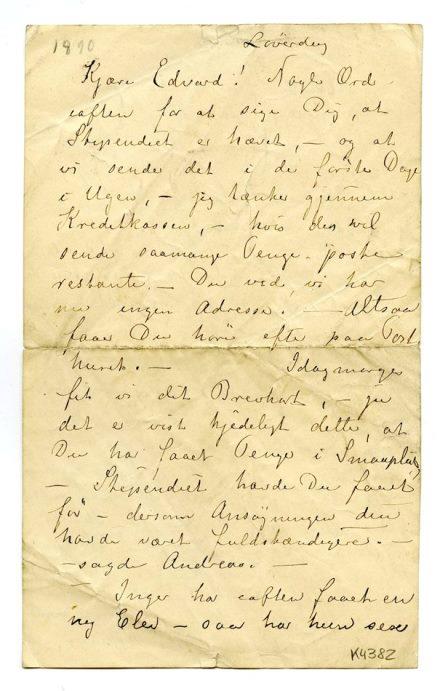 1890
Löverdag
Kjære Edvard! Nogle Ord
iaften for at sige Dig, at
Stipendiet er hævet, – og at
vi sende det i de første Dage
i Ugen, – jeg tænker gjennem
Kreditkassen, – hvis de vil
sende saamange Penge poste
restante. – Du ved, vi har
nu ingen Adresse. – Altsaa
faar Du høre efter paa Post
huset. – Idagmorges
fik vi dit Brevkort, – ja
det er vist kjedeligt dette, at
Du har faaet Penge i Smaapluk,
– Stipendiet havde Du faaet
før – dersom Ansøgningen den
havde været fuldstændigere. –
– sagde Andreas. –
Inger har iaften faaet en
ny Elev – saa har hun sex
K4382